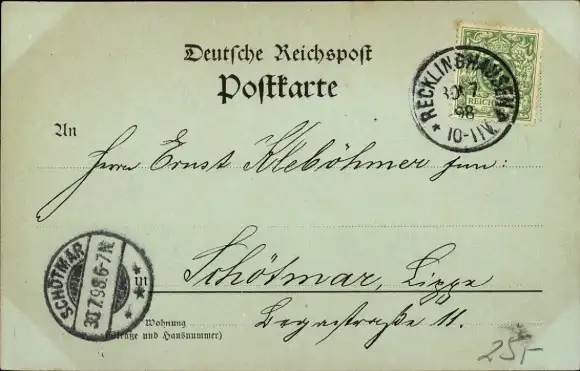 Deutsche Reichspost
Postkarte
RECKLINGHAUSEN
30 7
98
10-11V.
REICHS
An
Herrn Ernst Kleböhmer jun:
SCHÖTMAR
30.7.98.6-7N.
in
Schötmar, Lippe
Wohnung
(Straße und Hausnummer)
Begastraße 11.
25,-